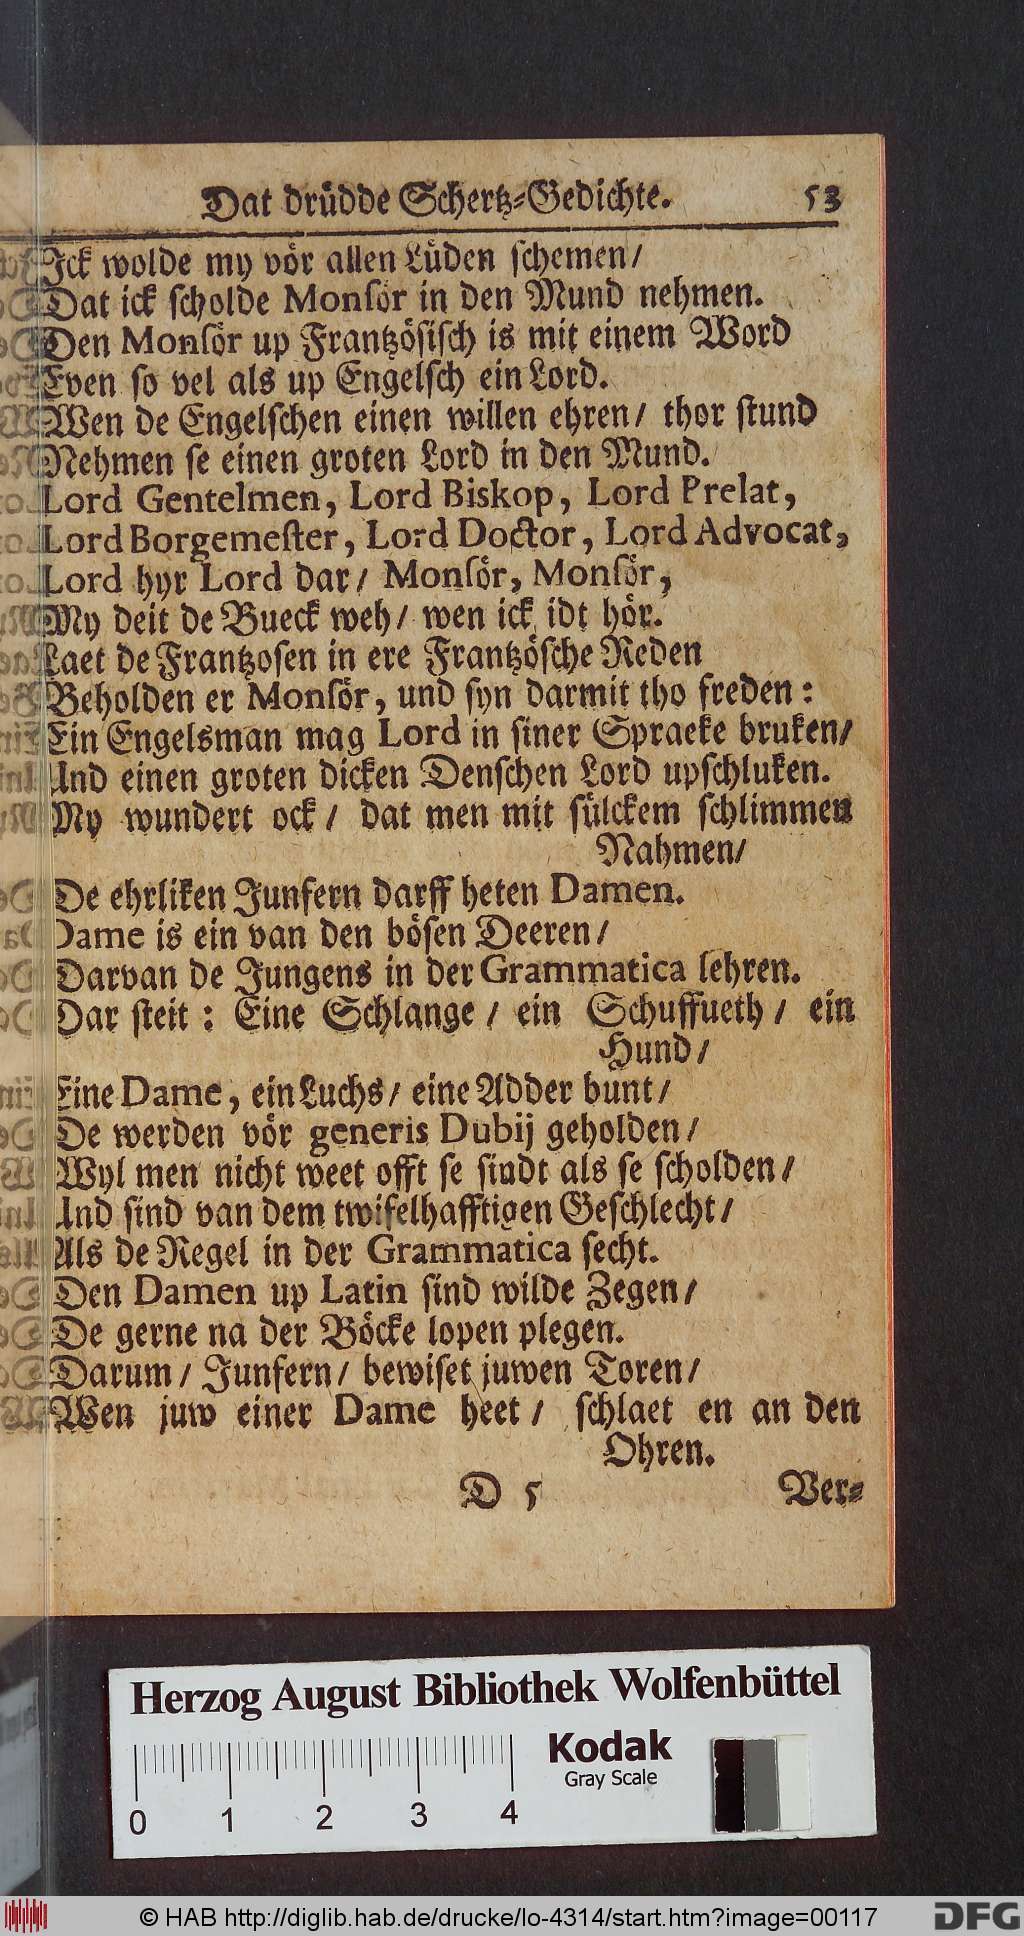 Dat drüdde Schertz-Gedichte. 53
Ick wolde my vör allen Lüden schemen/
Dat ick scholde Monsör in den Mund nehmen.
Den Monsör up Frantzösisch is mit einem Word
Even so vel als up Engelsch ein Lord.
Wen de Engelschen einen willen ehren/ thor stund
Nehmen se einen groten Lord in den Mund.
Lord Gentelmen, Lord Biskop, Lord Prelat,
Lord Borgemester, Lord Doctor, Lord Advocat,
Lord hyr Lord dar/ Monsör, Monsör,
My deit de Bueck weh/ wen ick idt hör.
Laet de Frantzosen in ere Frantzösche Reden
Beholden er Monsör, und syn darmit tho freden:
Ein Engelsman mag Lord in siner Spraeke bruken/
Und einen groten dicken Denschen Lord upschluken.
My wundert ock/ dat men mit sülckem schlimmen
Nahmen/
De ehrliken Junfern darff heten Damen.
Dame is ein van den bösen Deeren/
Darvan de Jungens in der Grammatica lehren.
Dar steit: Eine Schlange/ ein Schuffueth/ ein
Hund/
Eine Dame, ein Luchs/ eine Adder bunt/
De werden vör generis Dubij geholden/
Wyl men nicht weet offt se sindt als se scholden/
Und sind van dem twifelhafftigen Geschlecht/
Als de Regel in der Grammatica secht.
Den Damen up Latin sind wilde Zegen/
De gerne na der Böcke lopen plegen.
Darum/ Junfern/ bewiset juwen Toren/
Wen juw einer Dame heet/ schlaet en an den
Ohren.
D 5 Ver-
Herzog August Bibliothek Wolfenbüttel
Kodak
Gray Scale
0 1 2 3 4
© HAB http://diglib.hab.de/drucke/lo-4314/start.htm?image=00117
DFG